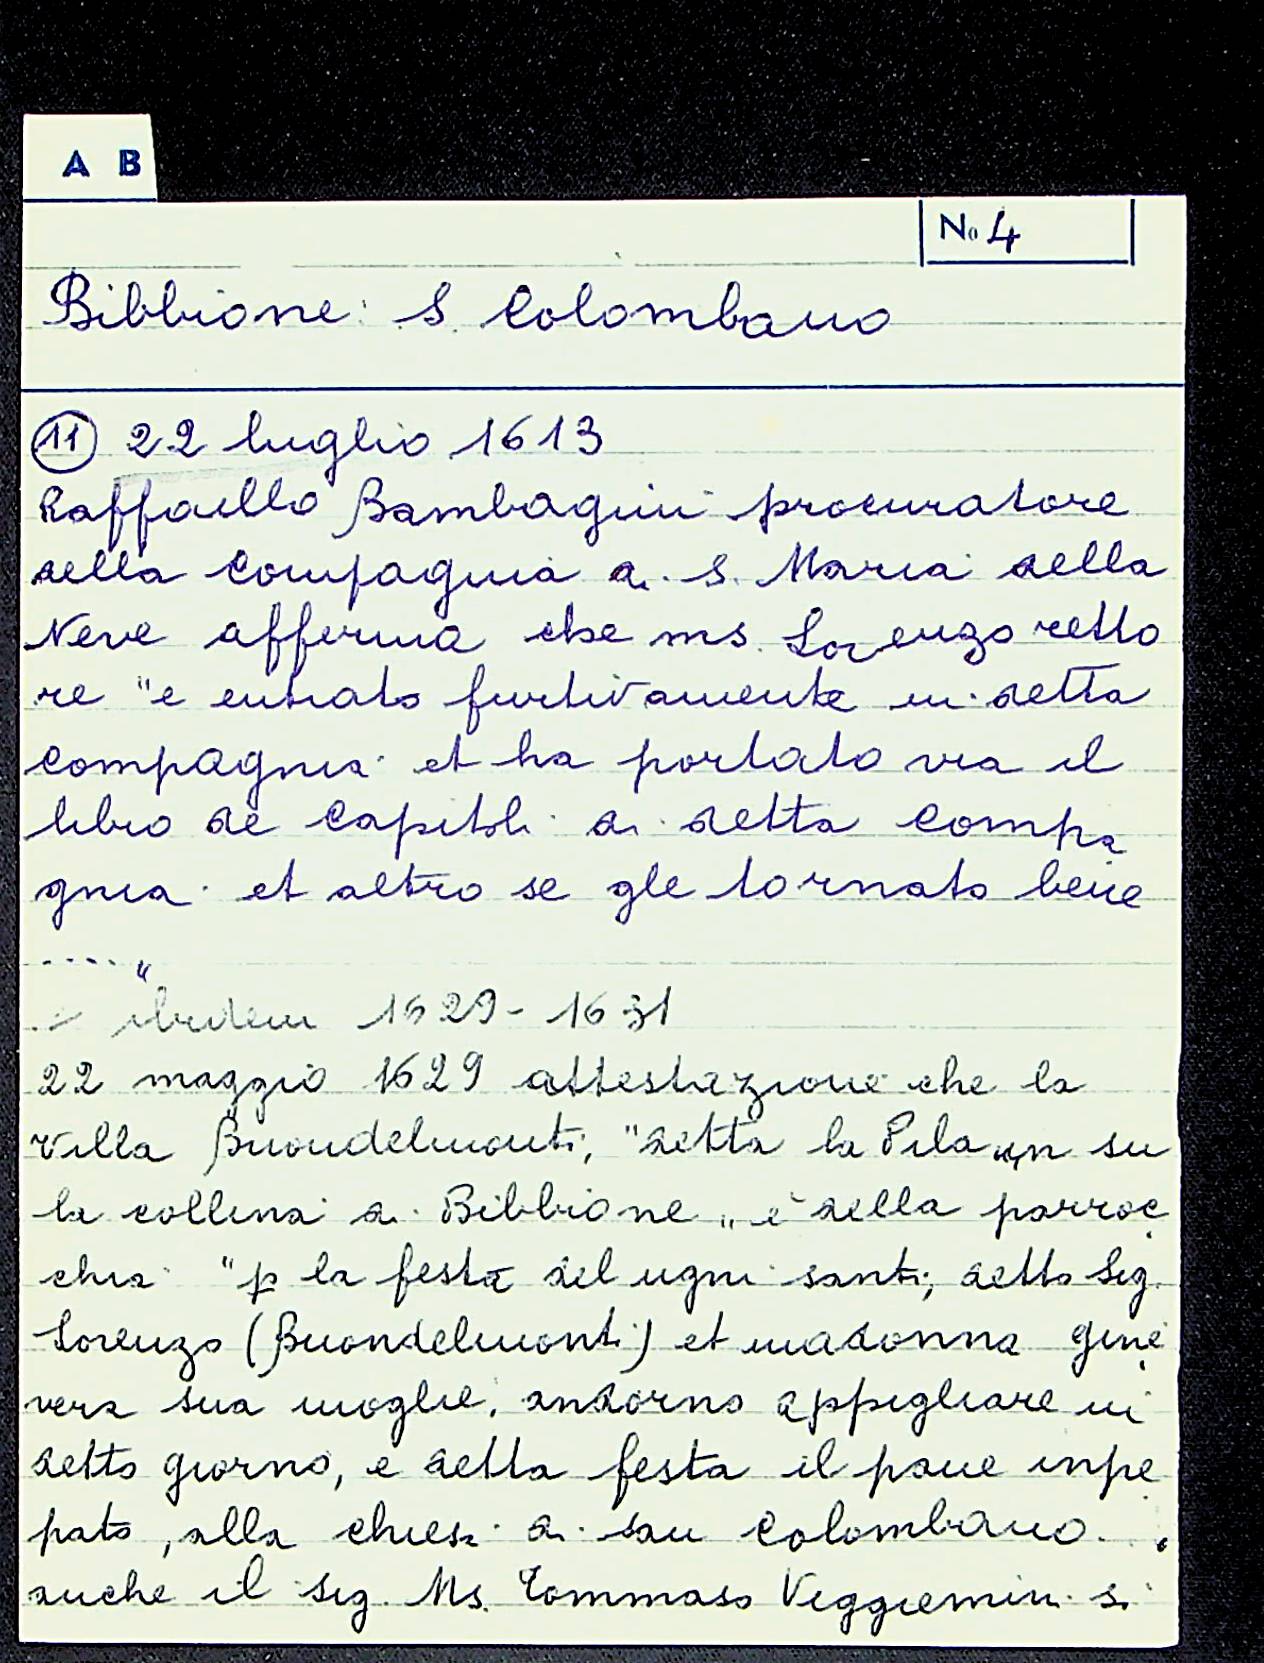 A B
No 4
Bibbione: S. Colombano
11 22 luglio 1613
Raffaello Bambagini procuratore
della Compagnia di S. Maria della
Neve afferma che ms. Lorenzo retto
re "e entrato furtivamente in detta
compagnia et ha portato via il
libro de Capitoli di detta Compa
gnia et altro se gle tornato bene
....."
ibidem 1629-1631
22 maggio 1629 attestazione che la
villa Buondelmonti, "detta la Pila in su
la collina di Bibbione" è della parroc
chia "p la festa del ugni santi, detto Sig.
Lorenzo (Buondelmonti) et madonna Gine
vera sua moglie, andorno appigliare in
detto giorno, e detta festa il pane inpe
pato, alla chiesa di san Colombano.
anche il sig. Ms. Tommaso si